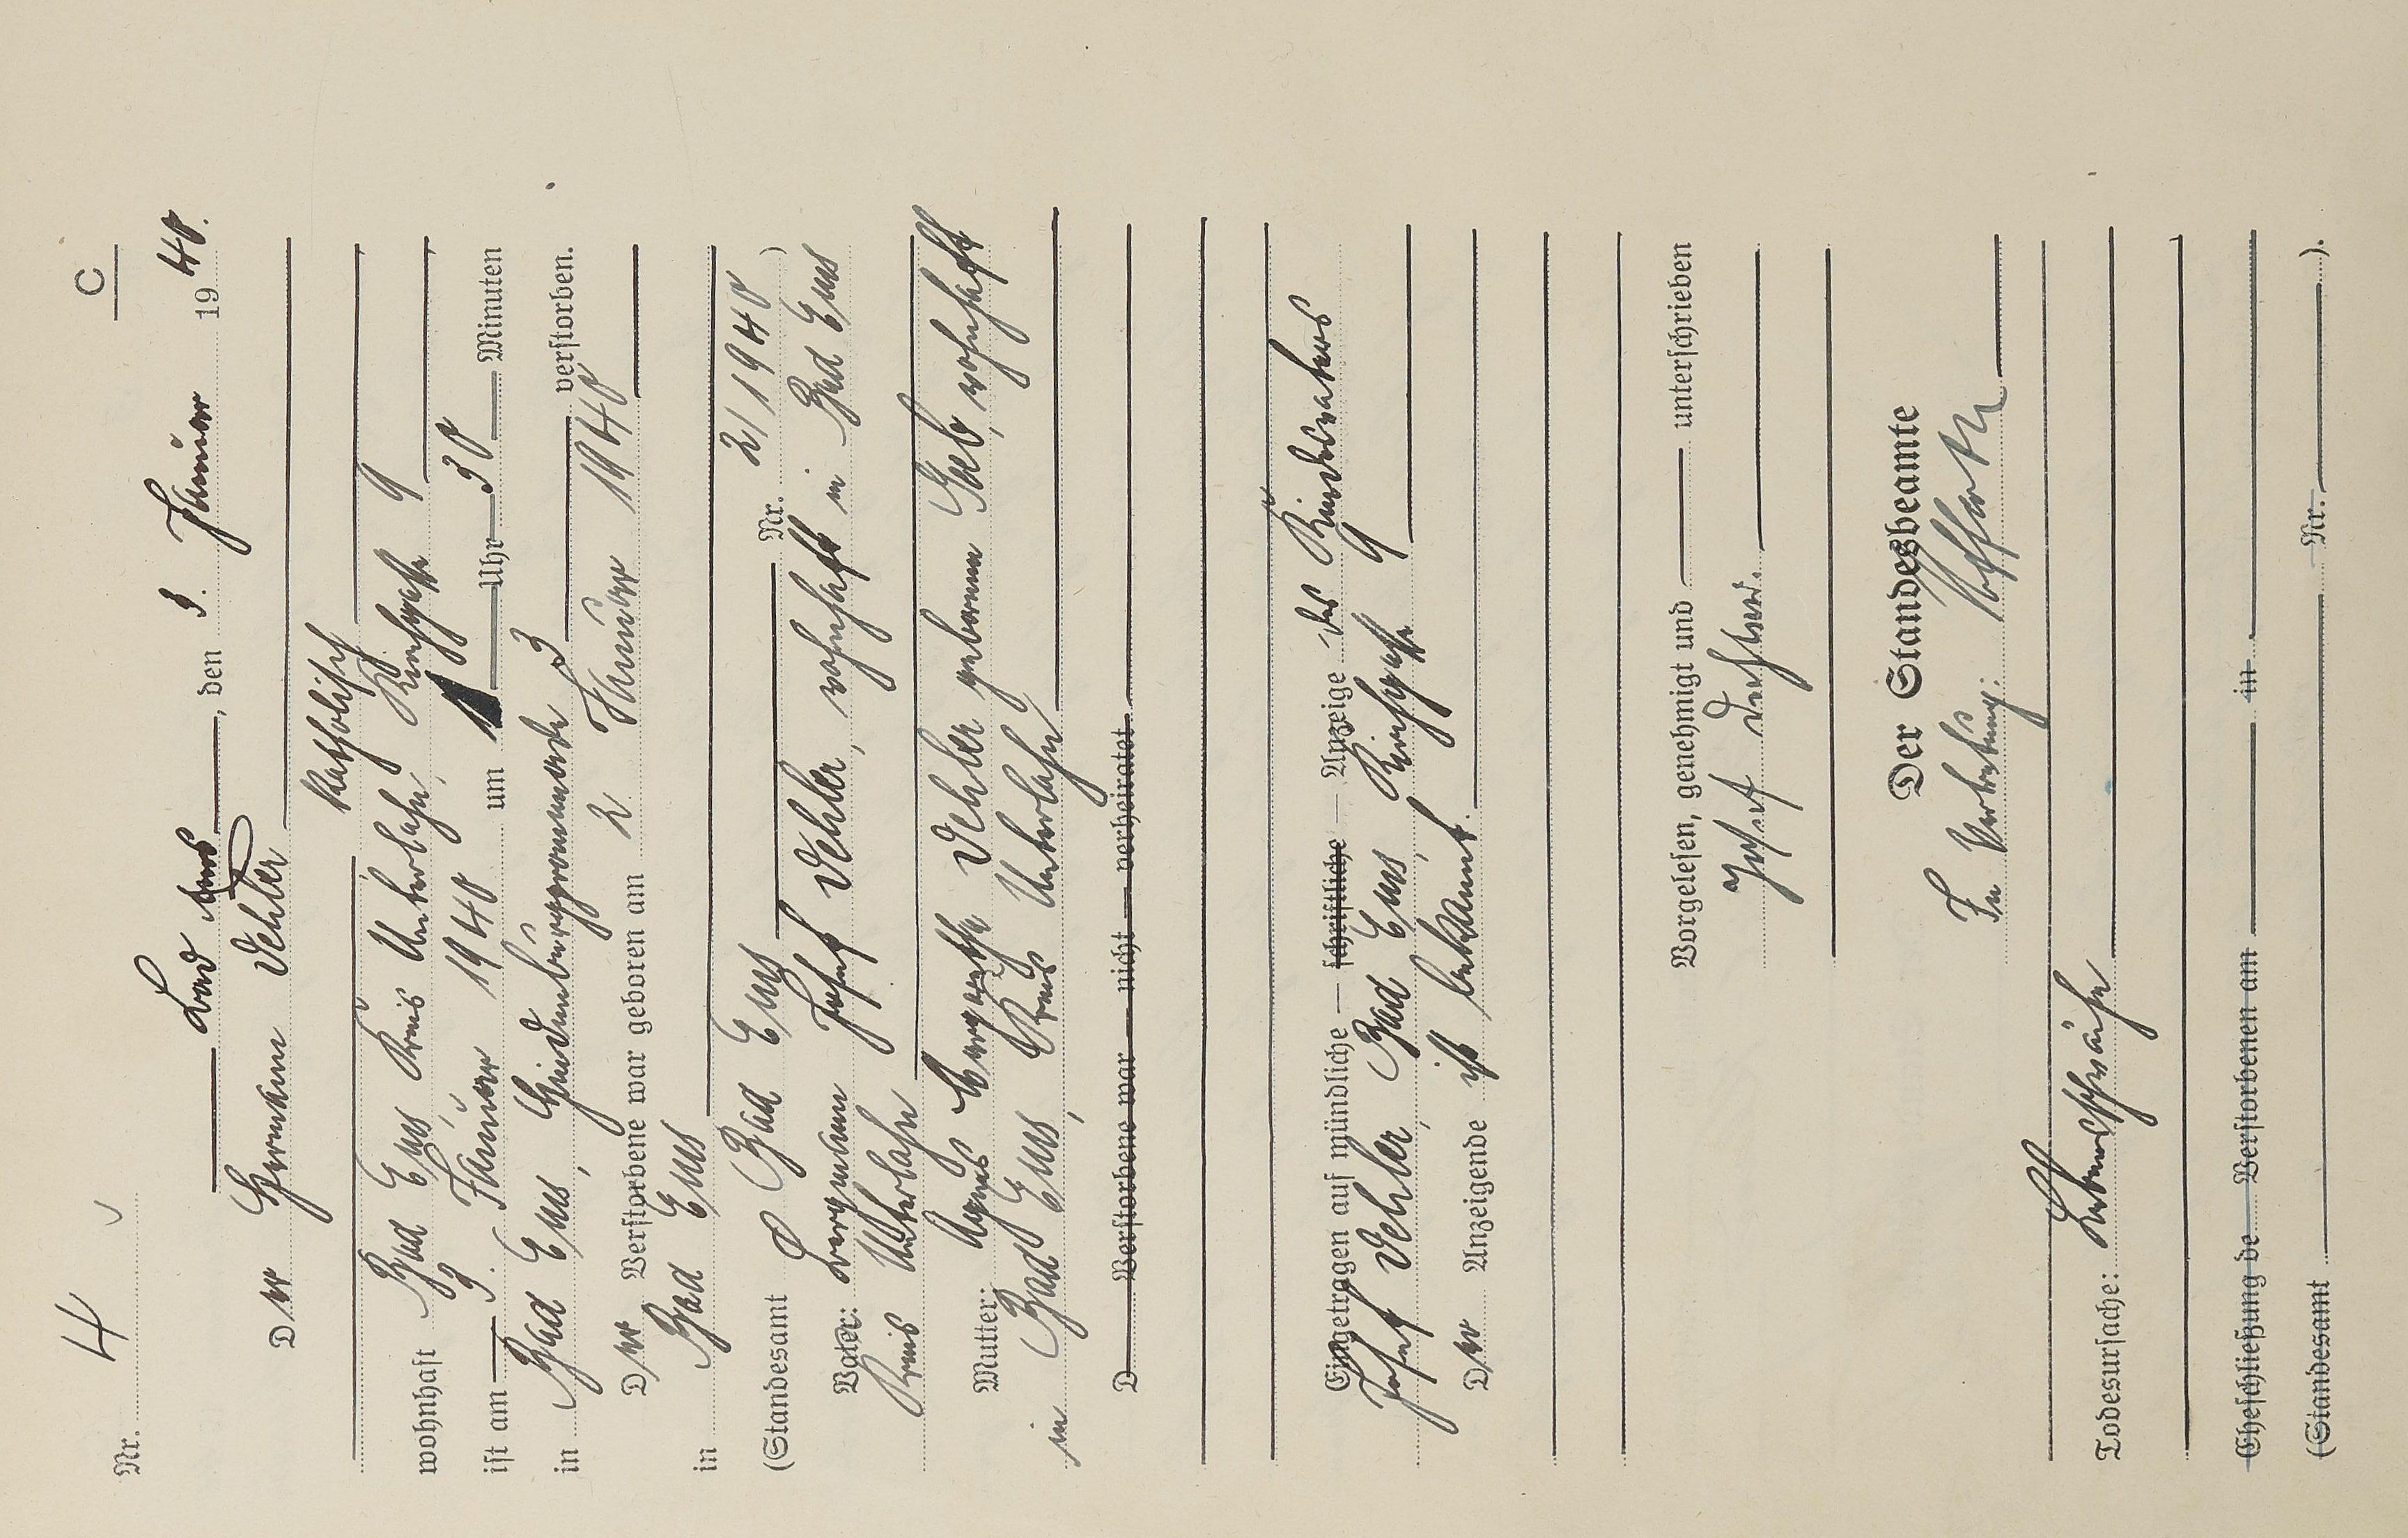 C
Nr. 4
Bad Ems, den 3. Januar 1940.
Der Hermann Oehler
katholisch
wohnhaft Bad Ems Kreis Unterlahn, Kirchgasse 9
ist am 3. Januar 1940 um 1 Uhr 30 Minuten
in Bad Ems, Hindenburgpromenade 3 verstorben.
Der Verstorbene war geboren am 2. Januar 1940
in Bad Ems
(Standesamt Bad Ems Nr. 2/1940)
Vater: Bergmann Josef Oehler, wohnhaft in Bad Ems
Kreis Unterlahn
Mutter: Agnes Margarethe Oehler geborene Gieb, wohnhaft
in Bad Ems, Kreis Unterlahn
D Verstorbene war nicht verheiratet
Eingetragen auf mündliche — schriftliche — Anzeige des Kindesvaters
Josef Oehler, Bad Ems, Kirchgasse 9
Der Anzeigende ist bekannt.
Vorgelesen, genehmigt und unterschrieben
Josef Oehler.
Der Standesbeamte
In Vertretung:
Todesursache: Lebensschwäche
Eheschließung de Verstorbenen am in
(Standesamt Nr. ).